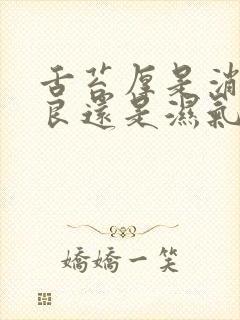 舌苔厚是消
良還是濕氣
嬌嬌一笑